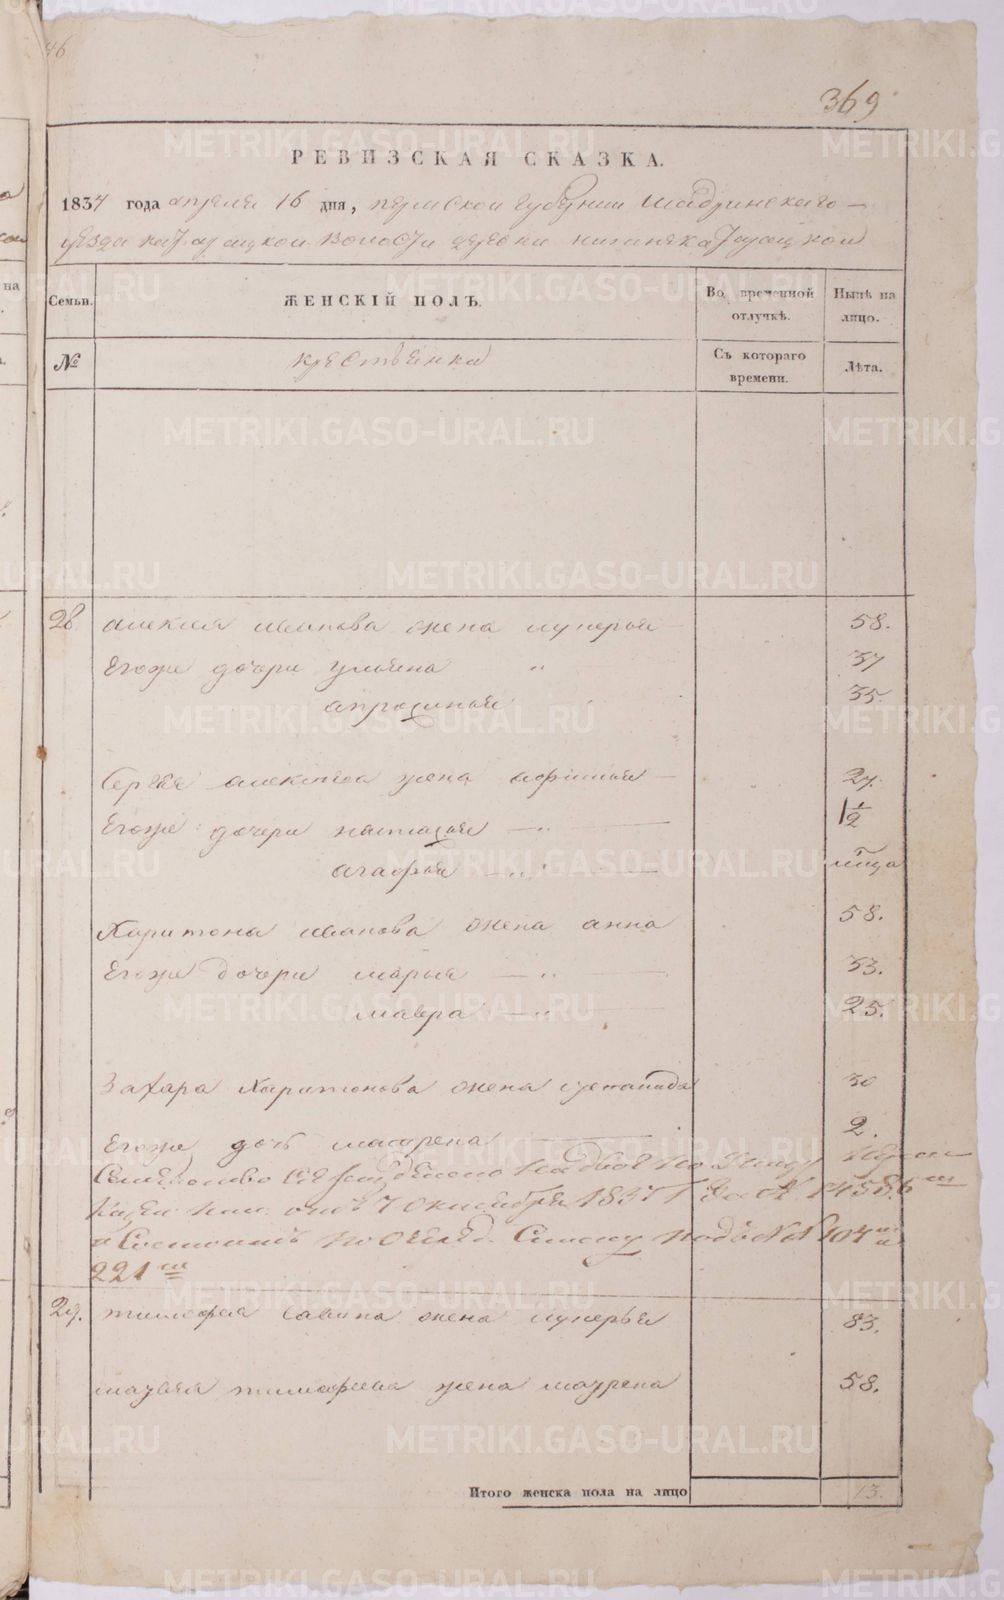 369
РЕВИЗСКАЯ СКАЗКА.
1834 года апреля 16 дня, пермской губернии Шадринскаго
уезда волости деревни
Семьи. ЖЕНСКІЙ ПОЛЪ. Во временной отлучкѣ. Нынѣ на лицо.
№ крестьянка Съ котораго времени. Лѣта.
28. алексея иванова жена лукерья 58.
Егоже дочери ульяна " 37
апросинья 35.
Сергея алексеева жена афимья 27.
Егоже дочери настасья " 1½
агафья "
Харитона иванова жена анна 58.
Егоже дочери марья " 33.
мавра " 25.
Захара Харитонова жена степанида 30
Егоже дочь 2.
Семейство сие разделено на двое по
7 октября 1837 г. за №
и Состоитъ по подъ №№ 104 и
221
29. тимофея савина жена лукерья 83.
тимофеева жена 58.
Итого женска пола на лицо 13.
METRIKI.GASO-URAL.RU